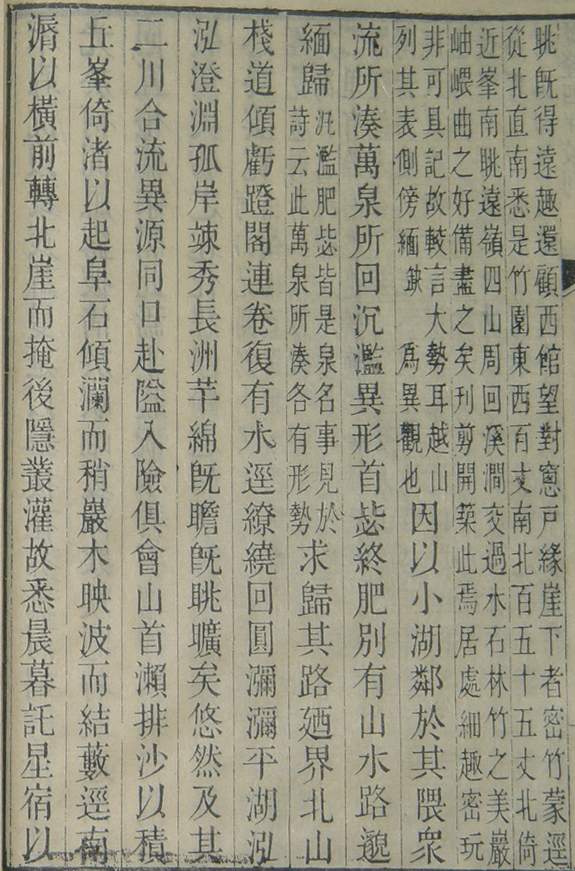 眺旣得遠趣還顧西館望對窻戶緣崖下者密竹蒙逕
從北直南悉是竹園東西百丈南北百五十五丈北倚
近峯南眺遠嶺四山周回溪澗交過水石林竹之美巖
岫嵔曲之好備盡之矣刊剪開築此焉居處細趣密玩
非可具記故較言大勢耳越山
列其表側傍緬缺爲異觀也
因以小湖鄰於其隈眾
流所湊萬泉所回沉濫異形首毖終肥別有山水路邈
緬歸
氿濫肥毖皆是泉名事見於
詩云此萬泉所湊各有形勢
求歸其路廼界北山
棧道傾虧蹬閣連卷復有水逕繚繞回圓瀰瀰平湖泓
泓澄淵孤岸竦秀長洲芊綿旣瞻旣眺曠矣悠然及其
二川合流異源同口赴隘入險俱會山首瀨排沙以積
丘峯倚渚以起阜石傾瀾而稍巖木映波而結藪逕南
漘以橫前轉北崖而掩後隱叢灌故悉晨暮託星宿以